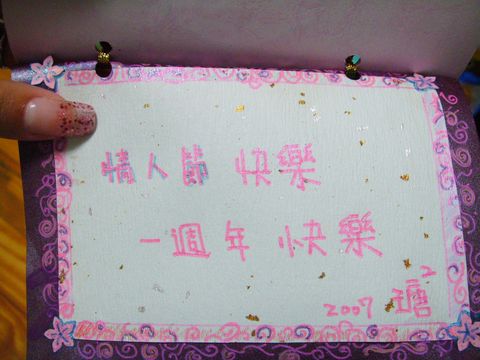 情人節 快樂
一週年 快樂
2007 瑭2